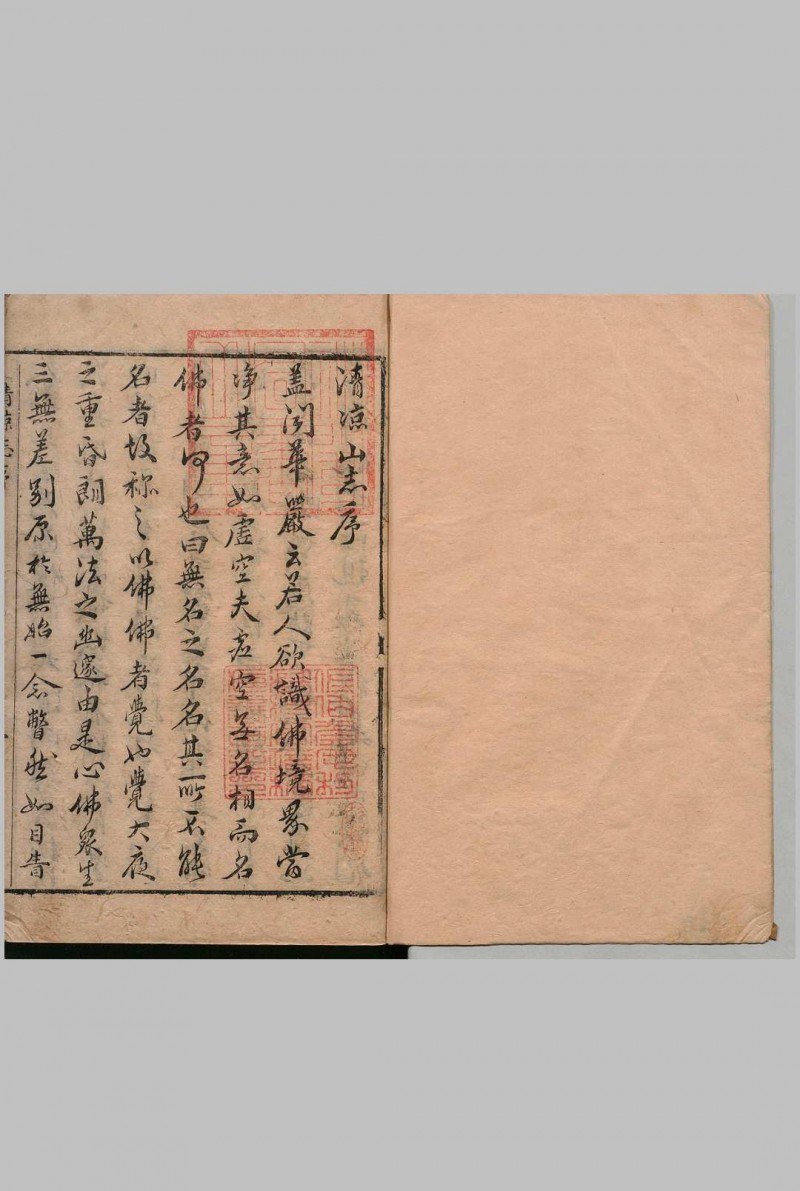 清凉山志序
盖闻華嚴云若人欲識佛境界當
净其意如虛空夫虛空無名相而名
佛者何也曰無名之名名其所不能
名者故称之以佛佛者覺也覺大夜
之重昏朗萬法之幽邃由是心佛衆生
三無差别原於無始一念瞥然如目眚
清凉志序